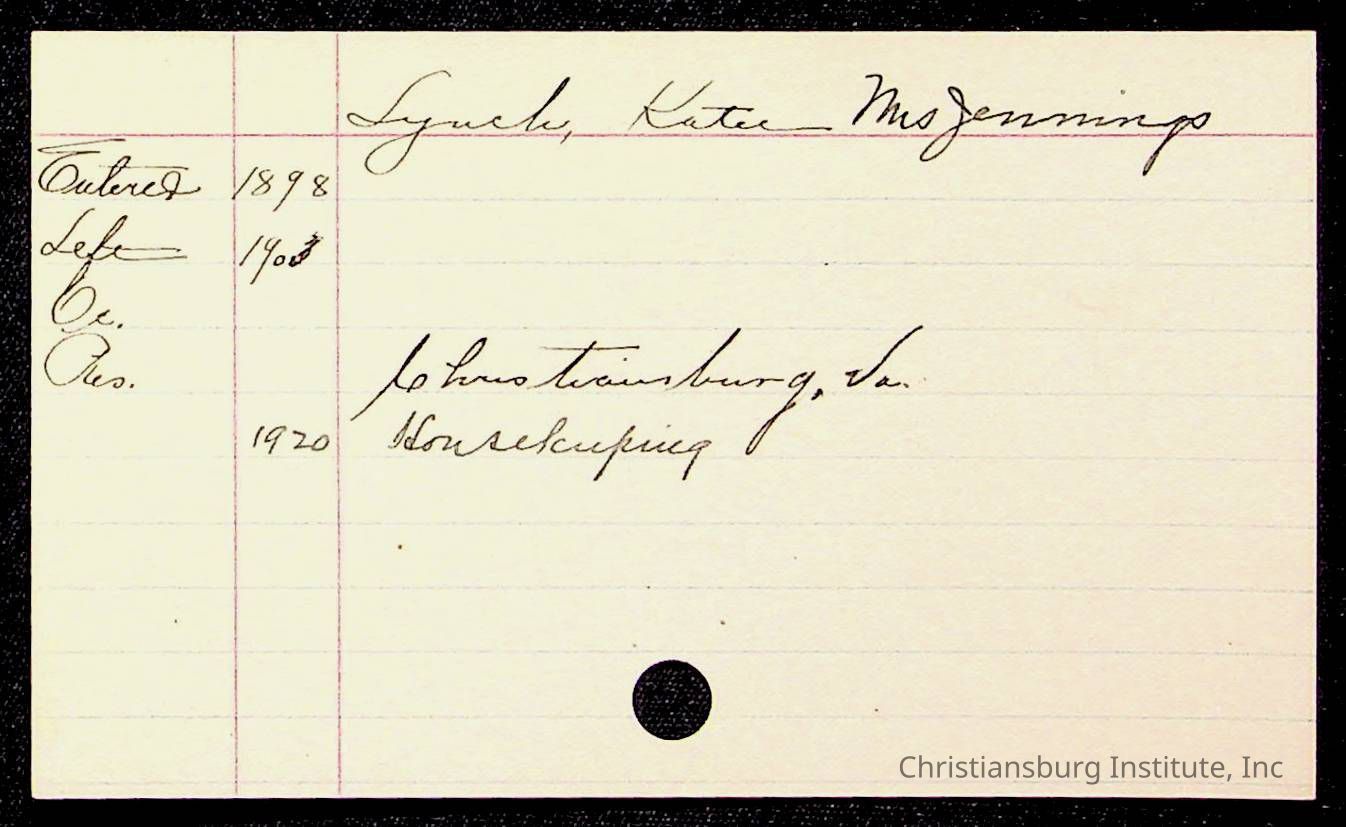 Lynch, Katie Mrs Jennings
Entered 1898
Left
Oc.
Res. Christiansburg, Va.
1920 Housekeeping
Christiansburg Institute, Inc